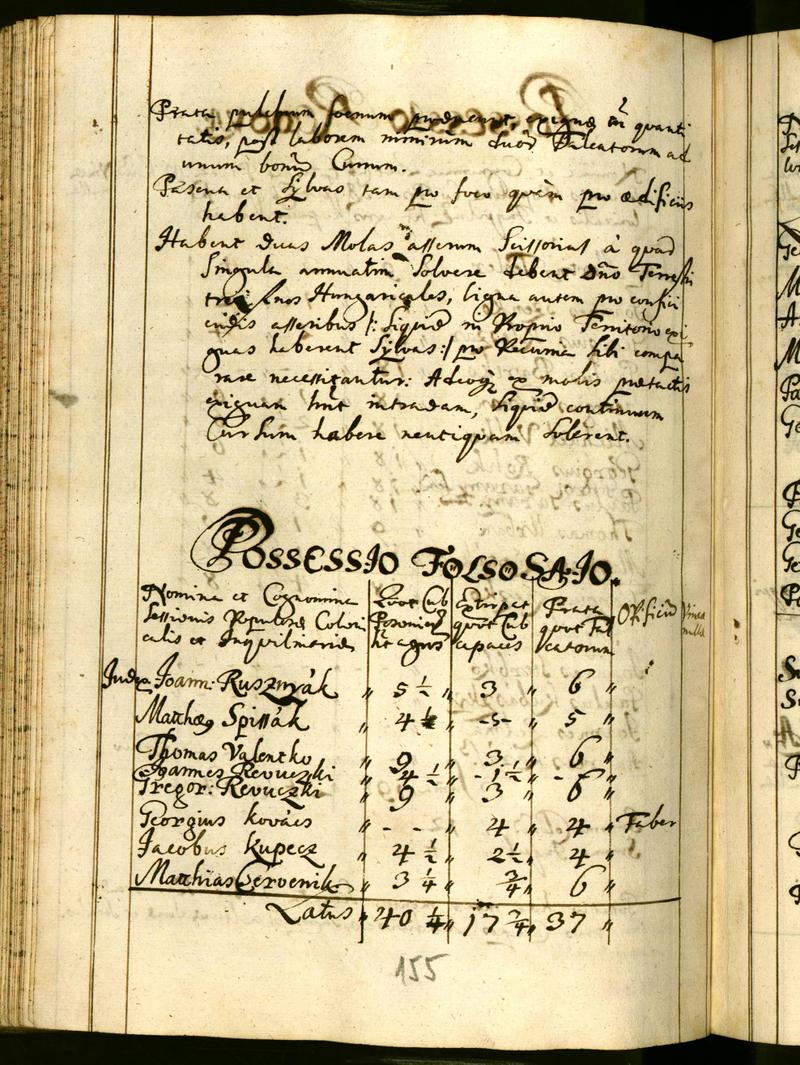 Prata pulchrum foenum producunt, exiguae tn quanti
tatis, post laborem nimirum duor Falcatorum ad
unum bonu Currum.
Pascua et Sylvas tam pro foco quàm pro aedificiis
habent.
Habent duas Molas asserum Scissorias à quar
Singula annuatim Solvere debent Dno Terrestri
tres fnos Hungaricales, ligna autem pro confici
endis asseribus /: siquid in Proprio Territorio exi
guas haberent Sylvas :/ pro Pecunia sibi compa
rare necessitantur: Adeoq ex molis praetactis
exiguam hnt intradam, siquid continuum
Cursum habere neutiquam solerent.
POSSESSIO FOLSO SAJO.
Nomina et Cognomina
Sessionis Populorē Coloni
calis et Inquilinaris
Quot Cub
Posonien
ht agros
Extirpat
quot Cub
capaces
Prata
quot Fal
catorum
Opificiū
Vinea
nulla
Judex Joann: Rusznyák " 5 1/2 " 3 " 6 "
Matthaeg Spissák " 4 1/2 " -5- " 5 "
Thomas Valentko " 9 " 3 " 6 "
Joannes Revuczki " 4 1/2 " - 1 1/2 " - - "
Gregor: Revuczki " 9 " 3 " 6 "
Georgius Kovács " - - " 4 " 4 " Faber
Jacobus Kupecz " 4 1/2 " 2 1/2 " 4 "
Matthias Cervenik " 3 1/4 " 3/4 " 6 "
Latus " 40 1/4 " 17 3/4 " 37 "
155